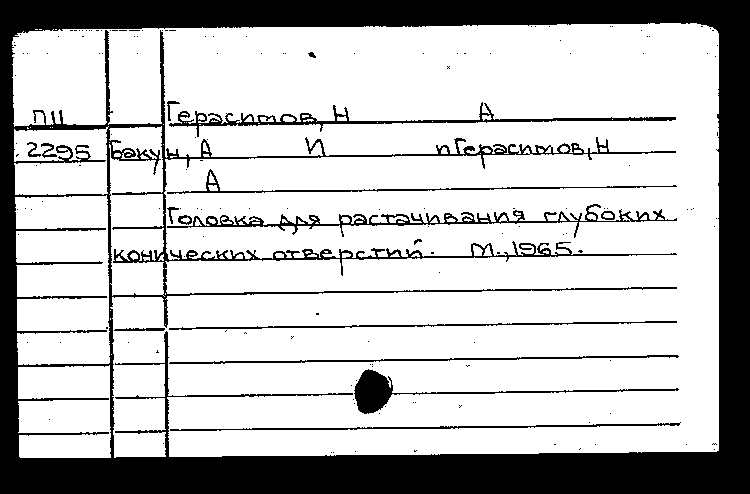 П11 Герасимов, Н А
2295 Бакун, А И пГерасимов, Н
А
Головка для растачивания глубоких
конических отверстий. М., 1965.